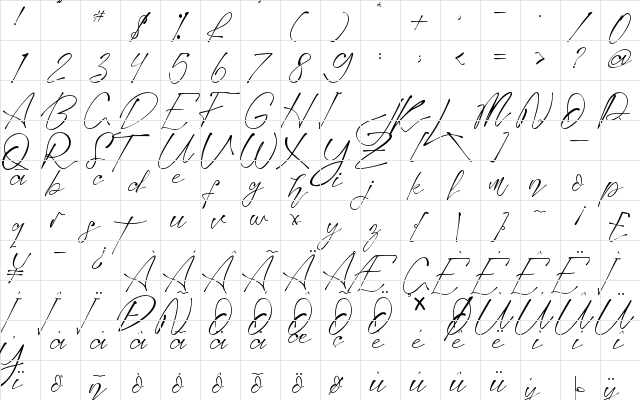 ! # $ % & ( ) * + , - . / 0
1 2 3 4 5 6 7 8 9 : ; < = > ? @
A B C D E F G H I J K L M N O P
Q R S T U V W X Y Z [ \ ] _
a b c d e f g h i j k l m n o p
q r s t u v w x y z { | } ~ ¡ £
¥ ¯ ¿ À Á Â Ã Ä Å Æ Ç È É Ê Ë Ì
Í Î Ï Ð Ñ Ò Ó Ô Õ Ö × Ø Ù Ú Û Ü
Ý à á â ã ä å æ ç è é ê ë ì í î
ï ð ñ ò ó ô õ ö ø ù ú û ü ý þ ÿ